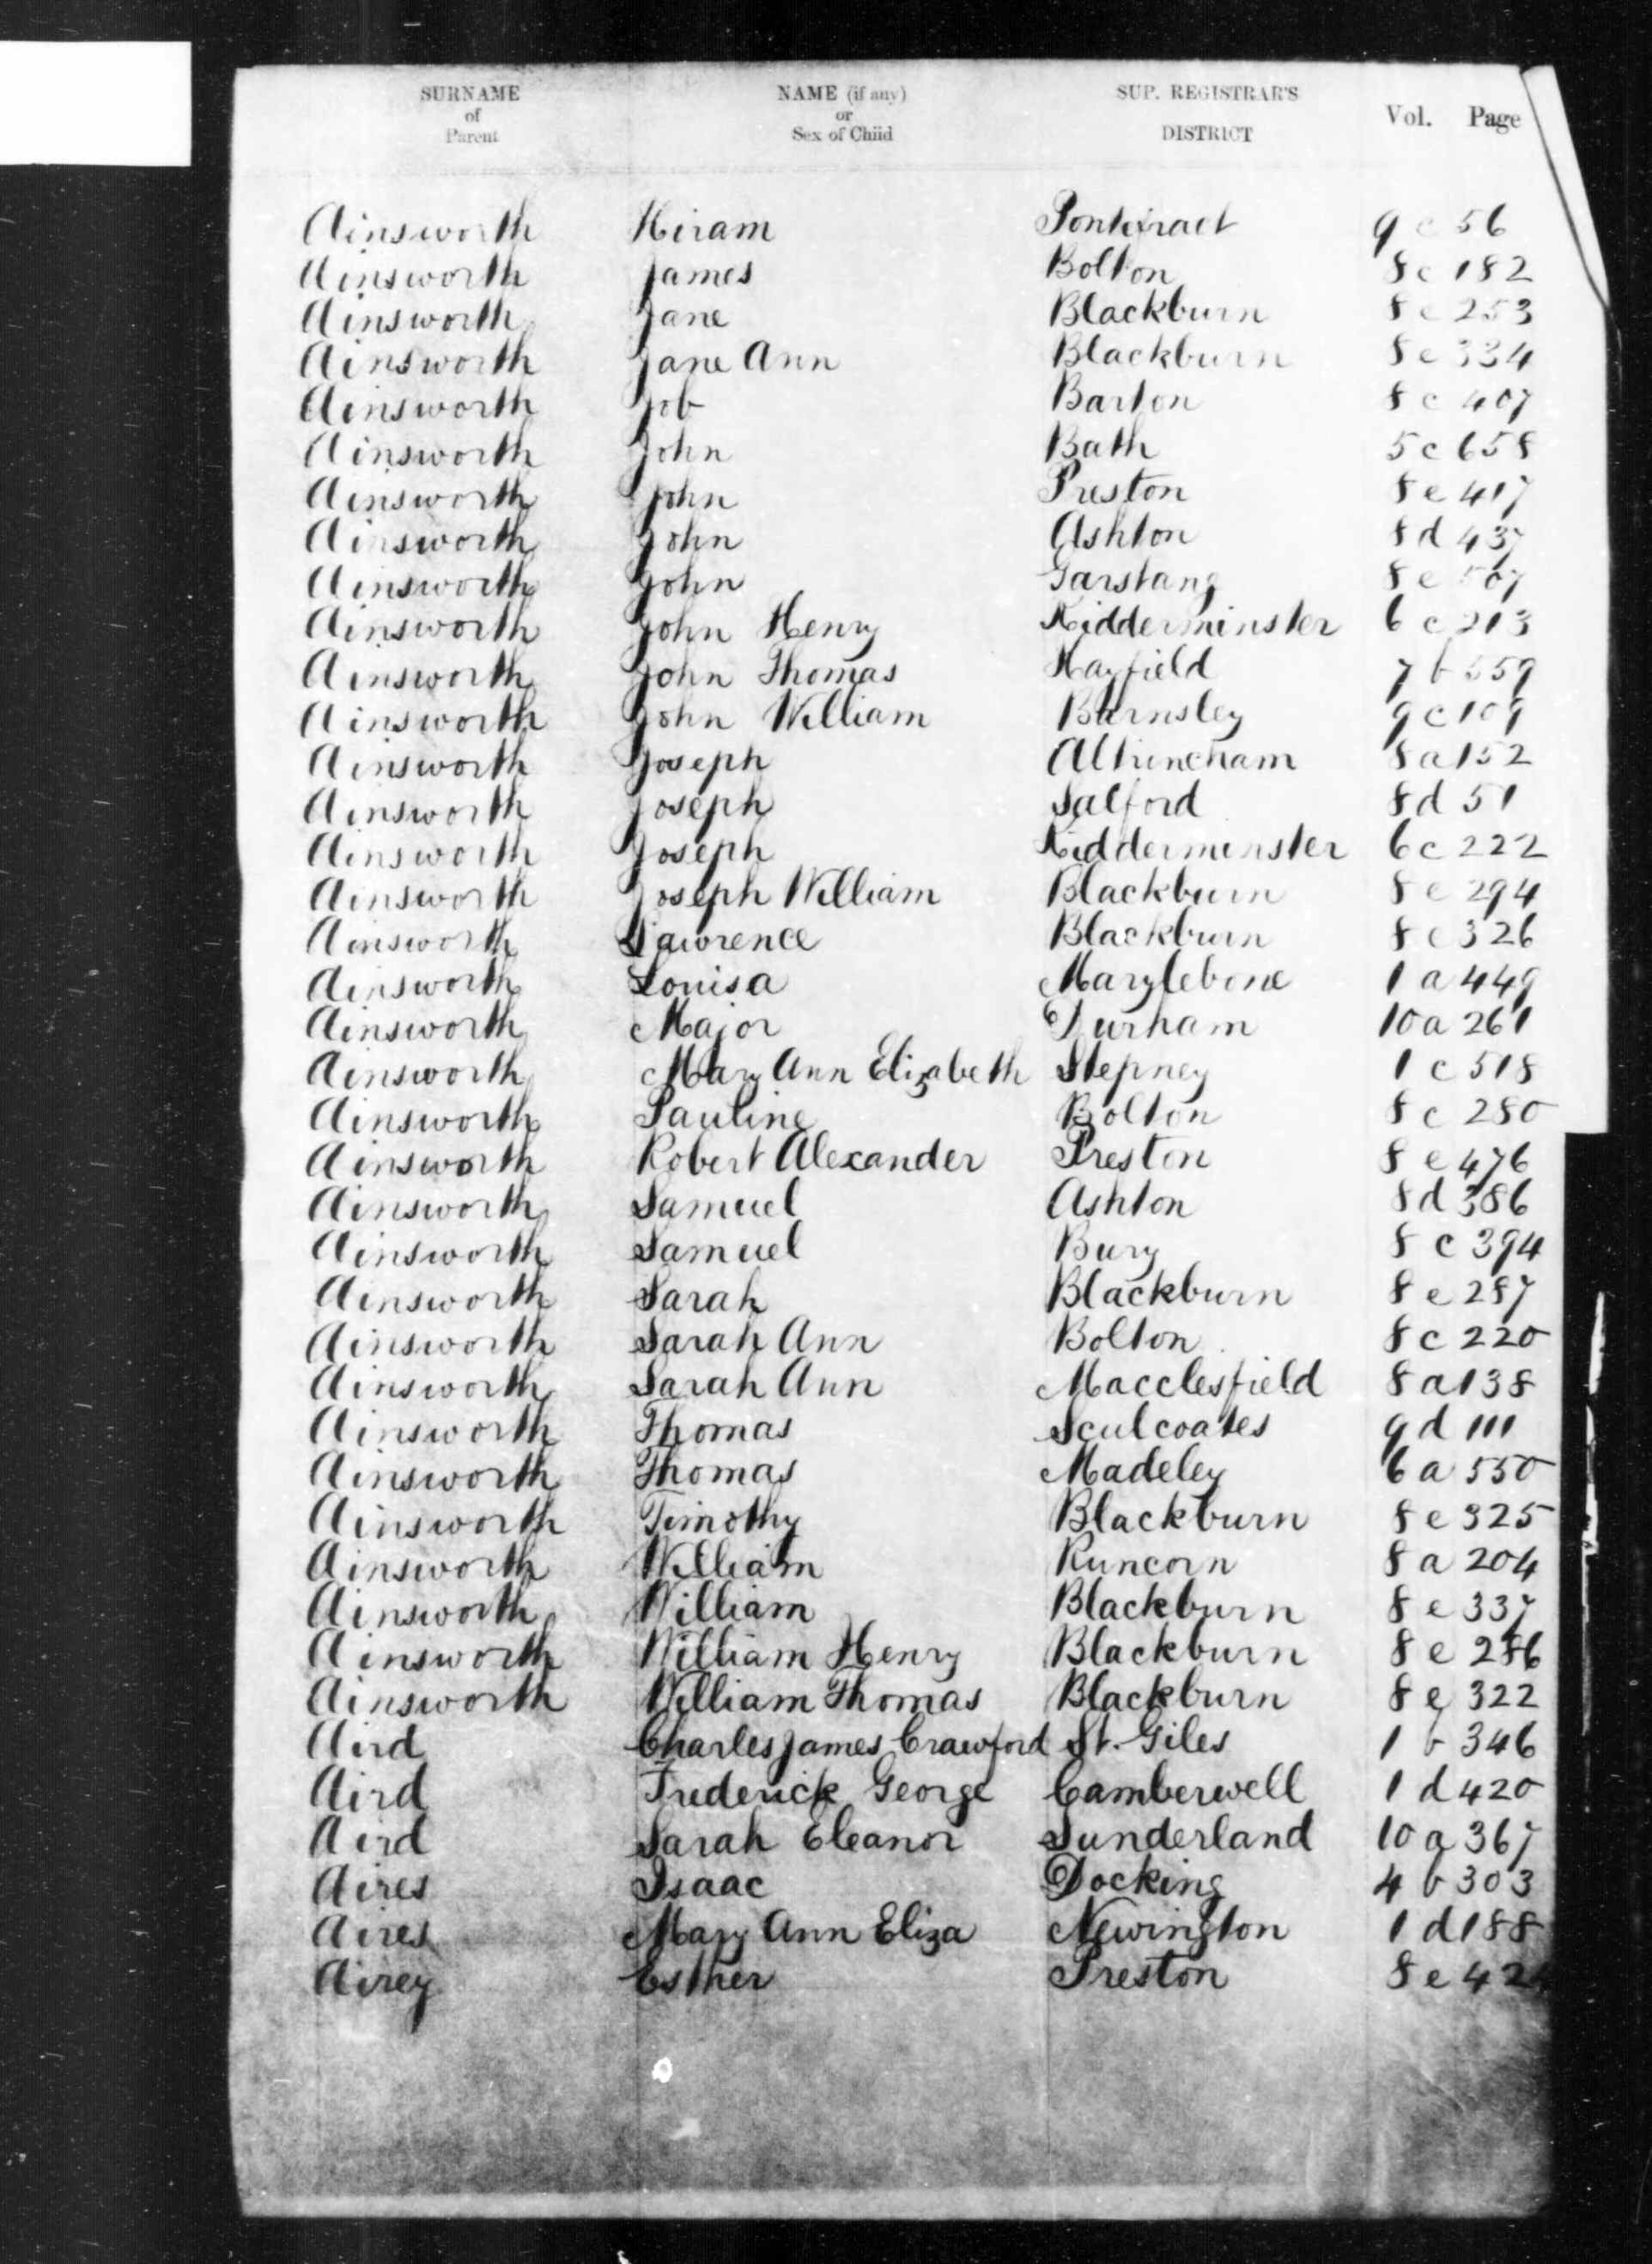 SURNAME of Parent NAME (if any) or Sex of Child SUP. REGISTRAR'S DISTRICT Vol. Page
Ainsworth Hiram Pontefract 9 c 56
Ainsworth James Bolton 8 c 182
Ainsworth Jane Blackburn 8 e 253
Ainsworth Jane Ann Blackburn 8 e 334
Ainsworth Job Barton 8 c 407
Ainsworth John Bath 5 c 658
Ainsworth John Preston 8 e 417
Ainsworth John Ashton 8 d 437
Ainsworth John Garstang 8 e 507
Ainsworth John Henry Kidderminster 6 c 213
Ainsworth John Thomas Hayfield 7 b 559
Ainsworth John William Barnsley 9 c 109
Ainsworth Joseph Altrincham 8 a 152
Ainsworth Joseph Salford 8 d 51
Ainsworth Joseph Kidderminster 6 c 222
Ainsworth Joseph William Blackburn 8 e 294
Ainsworth Lawrence Blackburn 8 e 326
Ainsworth Louisa Marylebone 1 a 449
Ainsworth Major Durham 10 a 261
Ainsworth Mary Ann Elizabeth Stepney 1 c 518
Ainsworth Pauline Bolton 8 c 280
Ainsworth Robert Alexander Preston 8 e 476
Ainsworth Samuel Ashton 8 d 386
Ainsworth Samuel Bury 8 c 394
Ainsworth Sarah Blackburn 8 e 287
Ainsworth Sarah Ann Bolton 8 c 220
Ainsworth Sarah Ann Macclesfield 8 a 138
Ainsworth Thomas Sculcoates 9 d 111
Ainsworth Thomas Madeley 6 a 550
Ainsworth Timothy Blackburn 8 e 325
Ainsworth William Runcorn 8 a 204
Ainsworth William Blackburn 8 e 337
Ainsworth William Henry Blackburn 8 e
Ainsworth William Thomas Blackburn 8 e 322
Aird Charles James Crawford St. Giles 1 b 346
Aird Frederick George Camberwell 1 d 420
Aird Sarah Eleanor Sunderland 10 a 367
Aires Isaac Docking 4 b 303
Aires Mary Ann Eliza Newington 1 d 188
Airey Esther Preston 8 e